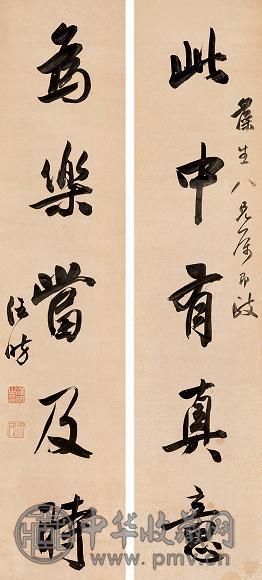 此中有真意
葆生八兄属即政
為樂當及時
中华收藏网
www.pmv.cn